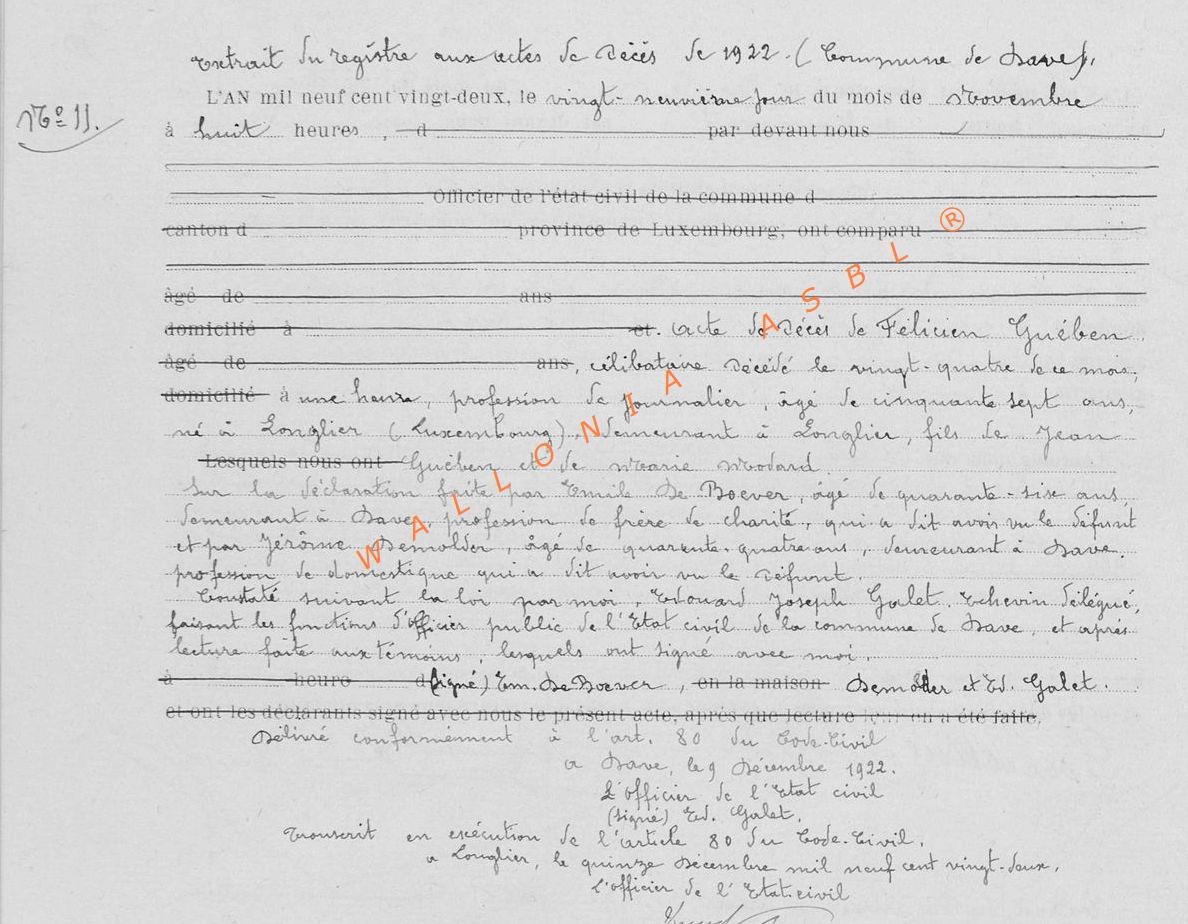 Extrait du registre aux actes de Décès de 1922. (Commune de Dave).
N° 11.
L'AN mil neuf cent vingt-deux, le vingt-neuvième jour du mois de Novembre
à huit heures, d par devant nous
Officier de l'état civil de la commune d
canton d province de Luxembourg, ont comparu
âgé de ans
domicilié à et. Acte de Décès de Félicien Guében
âgé de ans, célibataire décédé le vingt-quatre de ce mois,
domicilié à une heure, profession de journalier, âgé de cinquante sept ans,
né à Longlier (Luxembourg), demeurant à Longlier, fils de Jean
Lesquels nous ont Guében et de Marie Modard.
Sur la déclaration faite par Emile De Boever, âgé de quarante-six ans
demeurant à Dave, profession de frère de charité, qui a dit avoir vu le défunt
et par Jérôme Demolder, âgé de quarante-quatre ans, demeurant à Dave.
profession de domestique qui a dit avoir vu le défunt.
Constaté suivant la loi par moi, Edouard Joseph Galet. Echevin délégué,
faisant les fonctions d'officier public de l'Etat civil de la commune de Dave, et après
lecture faite aux témoins, lesquels ont signé avec moi.
à heure d (signé) Em. De Boever, en la maison Demolder et Ed. Galet.
et ont les déclarants signé avec nous le présent acte, après que lecture leur en a été faite.
Délivré conformément à l'art. 80 du Code-Civil
a Dave, le 9 Décembre 1922.
L'officier de l'Etat civil
(signé) Ed. Galet.
Transcrit en exécution de l'article 80 du Code-Civil.
a Longlier, le quinze Décembre mil neuf cent vingt-deux.
L'officier de l'Etat-civil
WALLONIA ASBL ®